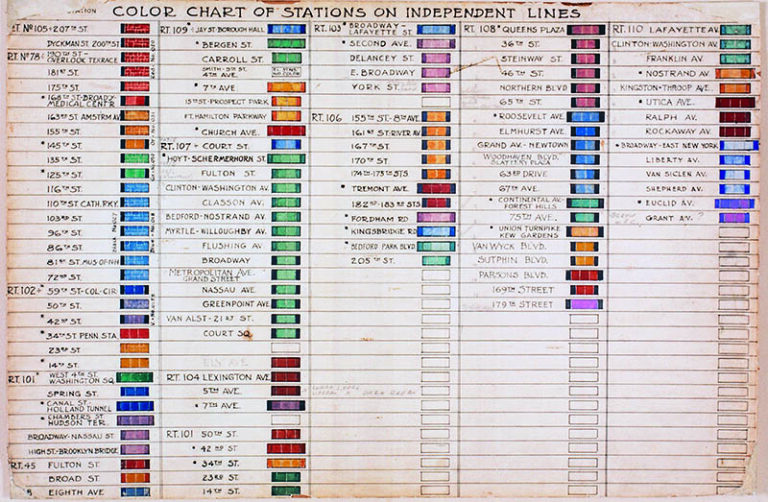 COLOR CHART OF STATIONS ON INDEPENDENT LINES
RT. Nº 105 207TH ST.
DYCKMAN ST. 200TH ST.
RT. Nº 78
OVERLOOK TERRACE
181ST ST.
175TH ST.
* 168TH ST-BROADY-
MEDICAL CENTR
163RD ST. AMSTRM AV.
155TH ST.
* 145TH ST.
135TH ST.
* 125TH ST.
116TH ST.
110TH ST. CATH. PKY.
103RD ST.
96TH ST.
86TH ST.
81ST ST. MUS-OF-NH
72ND ST.
RT. 102 * 59TH ST-COL-CIR
50TH ST.
* 42ND ST.
* 34TH ST. PENN. STA.
23RD ST
* 14TH ST.
RT. 101 * WEST 4TH ST.
WASHINGTON SQ.
SPRING ST.
* CANAL ST.-
HOLLAND TUNNEL
* CHAMBERS ST.
HUDSON TER.
BROADWAY-NASSAU ST.
HIGH ST.-BROOKLYN BRIDGE
RT. 45 FULTON ST.
BROAD ST.
EIGHTH AVE
RT. 109 * JAY ST. BOROUGH HALL
* BERGEN ST.
CARROLL ST.
SMITH-9TH ST.
4TH AVE.
* 7TH AVE
15TH ST-PROSPECT PARK
FT. HAMILTON PARKWAY
* CHURCH AVE.
RT. 107 * COURT ST.
* HOYT-SCHERMERHORN ST.
FULTON ST.
CLINTON-WASHINGTON AV.
CLASSON AV.
BEDFORD-NOSTRAND AV.
MYRTLE-WILLOUGHBY AV.
FLUSHING AV.
BROADWAY
METROPOLITAN AVE.
GRAND STREET
NASSAU AVE.
GREENPOINT AVE.
VAN ALST-21ST ST.
COURT SQ.
ELY AVE.
RT. 104 LEXINGTON AVE.
5TH AVE.
* 7TH AVE.
RT. 101 50TH ST.
* 42ND ST
* 34TH ST.
23RD ST
14TH ST.
RT. 103 * BROADWAY-
LAFAYETTE ST.
* SECOND AVE.
DELANCEY ST.
E. BROADWAY
YORK ST.
RT. 106 155TH ST-8TH AVE
161ST ST-RIVER AV.
167TH ST
170TH ST
174TH-175TH STS
* TREMONT AVE.
182ND-183RD STS
* FORDHAM RD
* KINGSBRIDGE RD
* BEDFORD PARK BLVD
205TH ST.
RT. 108 * QUEENS PLAZA
36TH ST.
STEINWAY ST.
46TH ST.
NORTHERN BLVD
65TH ST.
* ROOSEVELT AVE.
ELMHURST AVE.
GRAND AV.-NEWTOWN
WOODHAVEN BLVD.
SLATTERY PLACE
63RD DRIVE
67TH AVE.
* CONTINENTAL AV-
FOREST HILLS
75TH AVE.
* UNION TURNPIKE
KEW GARDENS
VAN WYCK BLVD.
SUTPHIN BLVD.
PARSONS BLVD.
169TH STREET
179TH STREET
RT. 110 LAFAYETTE AV
CLINTON-WASHINGTON AV.
FRANKLIN AV
* NOSTRAND AV
KINGSTON-THROOP AVE.
* UTICA AVE.
RALPH AV.
ROCKAWAY AV.
* BROADWAY-EAST NEW YORK
LIBERTY AV.
VAN SICLEN AV.
SHEPHERD AV.
* EUCLID AV.
GRANT AV. ?